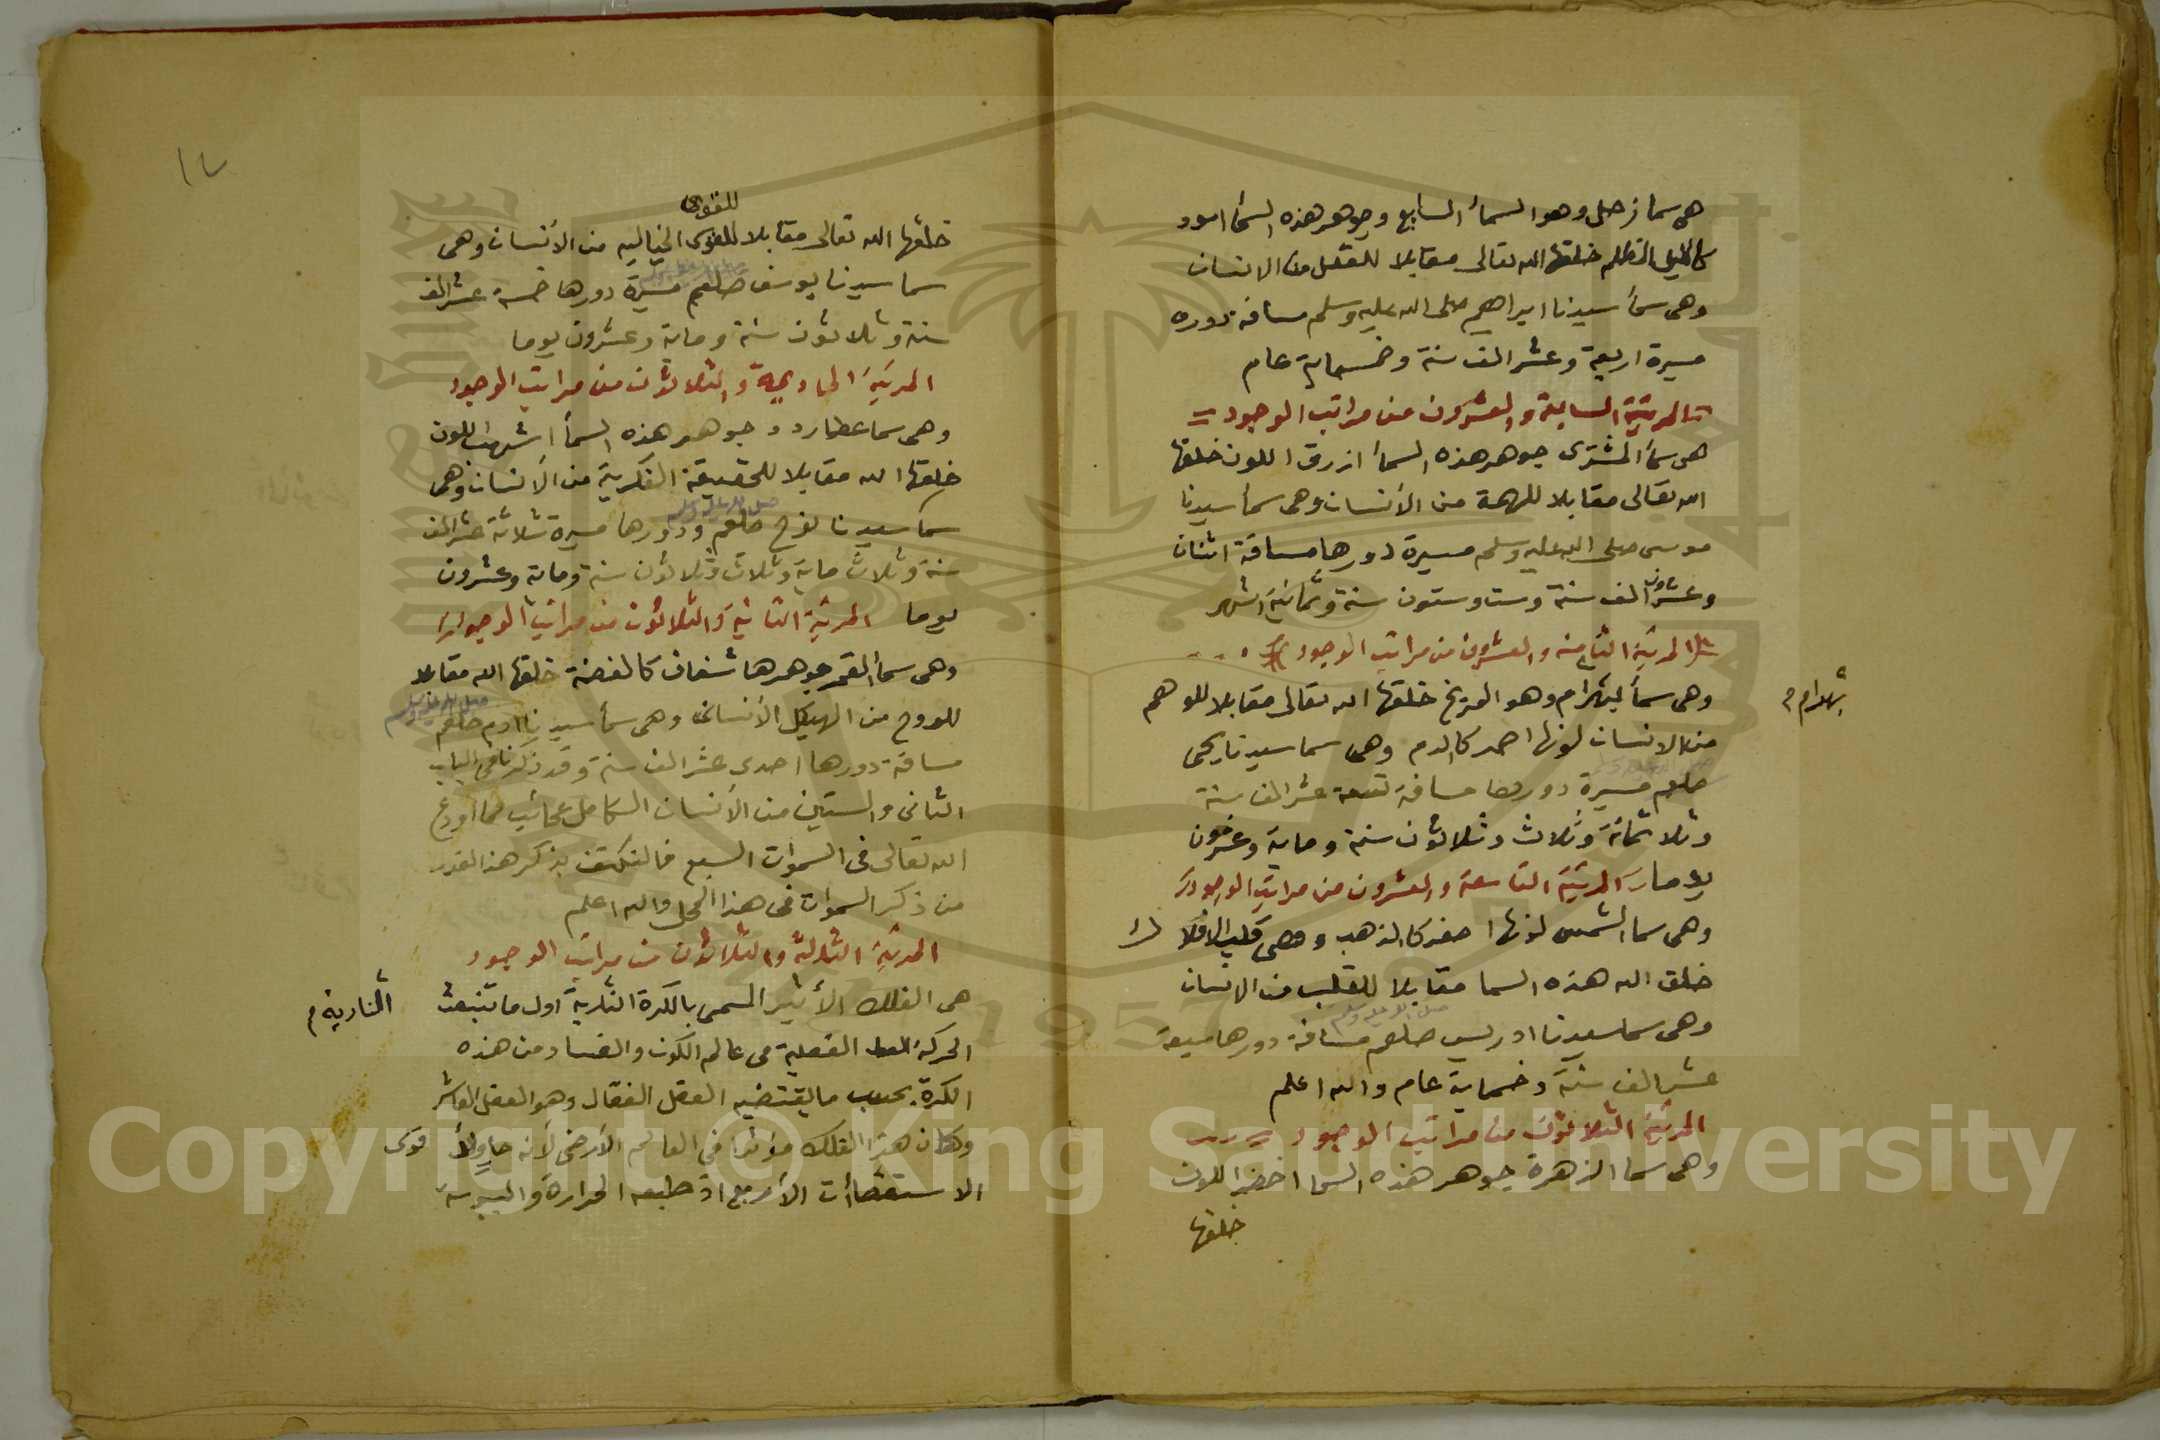 هى سما زحل وهو السمأ السابع وجوهر هذه السمأ اسود
كالليل المظلم خلقها الله تعالى مقابلا للعقل من الانسان
وهى سمأ سيدنا ابراهيم صلى الله عليه وسلم مسافة دوره
مسيرة اربعة وعشر الف سنة وخمسماية عام
المرتبة السابعة والعشرون من مراتب الوجود
هى سمأ المشترى جوهر هذه السمأ ازرق اللون خلقها
الله تعالى مقابلا للهمة من الأنسان وهى سمأ سيدنا
موسى صلى الله عليه وسلم مسيرة دورها مسافة اثنان
وعشرون الف سنة وست وستون سنة وثمانية اشهر
المرتبة الثامنه والعشرون من مراتب الوجود
وهى سمأ بهرام وهو المريخ خلقها الله تعالى مقابلا للوهم
بهرام م
من الانسان لونها احمر كالدم وهى سما سيدنا يحيى
صلعم مسيرة دورها مسافة تسعة عشر الف سنة
وثلاثمائة وثلاث وثلاثون سنة وماية وعشرون
يوما المرتبة التاسعة والعشرون من مراتب الوجود
وهى سما الشمس لونها اصفر كالذهب وهى قلب الافلاك
خلق الله هذه السما مقابلا للقلب من الانسان
وهى سما سيدنا ادريس صلعم مسافة دورها سبعة
صلى الله عليه وسلم
عشر الف سنة وخمساية عام والله اعلم
المرتبة الثلاثون من مراتب الوجود
وهى سما الزهرة جوهر هذه السما اخضر اللون
خلقها
١٢
للقوى
خلقها الله تعالى مقابلا للقوى الخياليه من الأنسان وهى
سما سيدنا يوسف صلعم مسيرة دورها خمسة عشر الف
سنة وثلاثون سنة وماية وعشرون يوما
المرتبة الحادية والثلاثون من مراتب الوجود
وهى سما عطارد وجوهر هذه السمأ اشهب اللون
خلقها الله مقابلا للحقيقة الفكرية من الأنسان وهى
سمأ سيدنا نوح صلعم ودورها مسيرة ثلاثة عشر الف
صلى الله عليه وسلم
سنة وثلاث ماية وثلاث وثلاثون سنة وماية وعشرون
يوما المرتبة الثانية والثلاثون من مراتب الوجود
وهى سمأ القمر جوهرها شفاف كالفضة خلقها الله مقابلا
للروح من الهيكل الأنسانى وهى سمأ سيدنا ادم صلعم
صلى الله عليه وسلم
مسافة دورها احدى عشر الف سنة وقد ذكرنا فى الباب
الثانى والستين من الأنسان الكامل عجائب مما اودع
الله تعالى فى السموات السبع فالنكتف بذكر هذا القدر
من ذكر السموات فى هذا المحل والله اعلم
المرتبة الثالثة والثلاثون من مراتب الوجود
هى الفلك الأثير المسمى بالكرة النارية اول ما تنبعث
النارية م
الحركة الفعلية فى عالم الكون والفساد من هذه
الكرة بحسب ما يقتضيه العقل الفعال وهو العقل العاشر
وكان هذا الفلك مؤثرا فى العالم الأرضى لأنه حاول قوى
الاستقصاأت الأربع اذ طبعه الحرارة واليبوسة